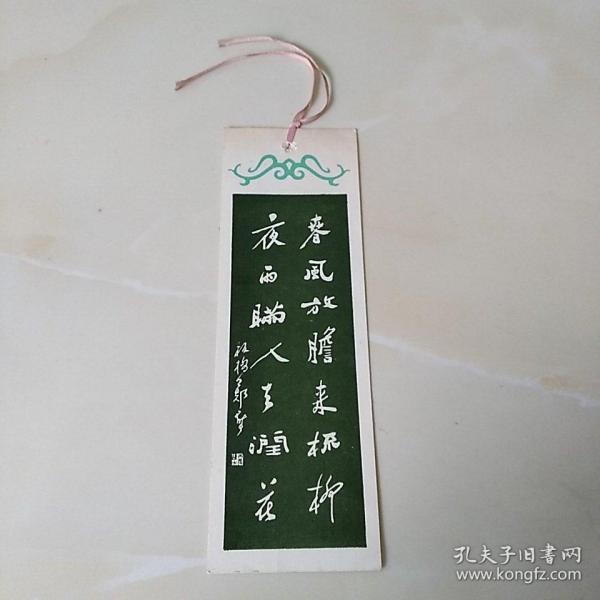 春風放膽来梳柳
夜雨瞞人去潤花
板橋鄭燮
孔夫子旧書网
www.kongfz.com